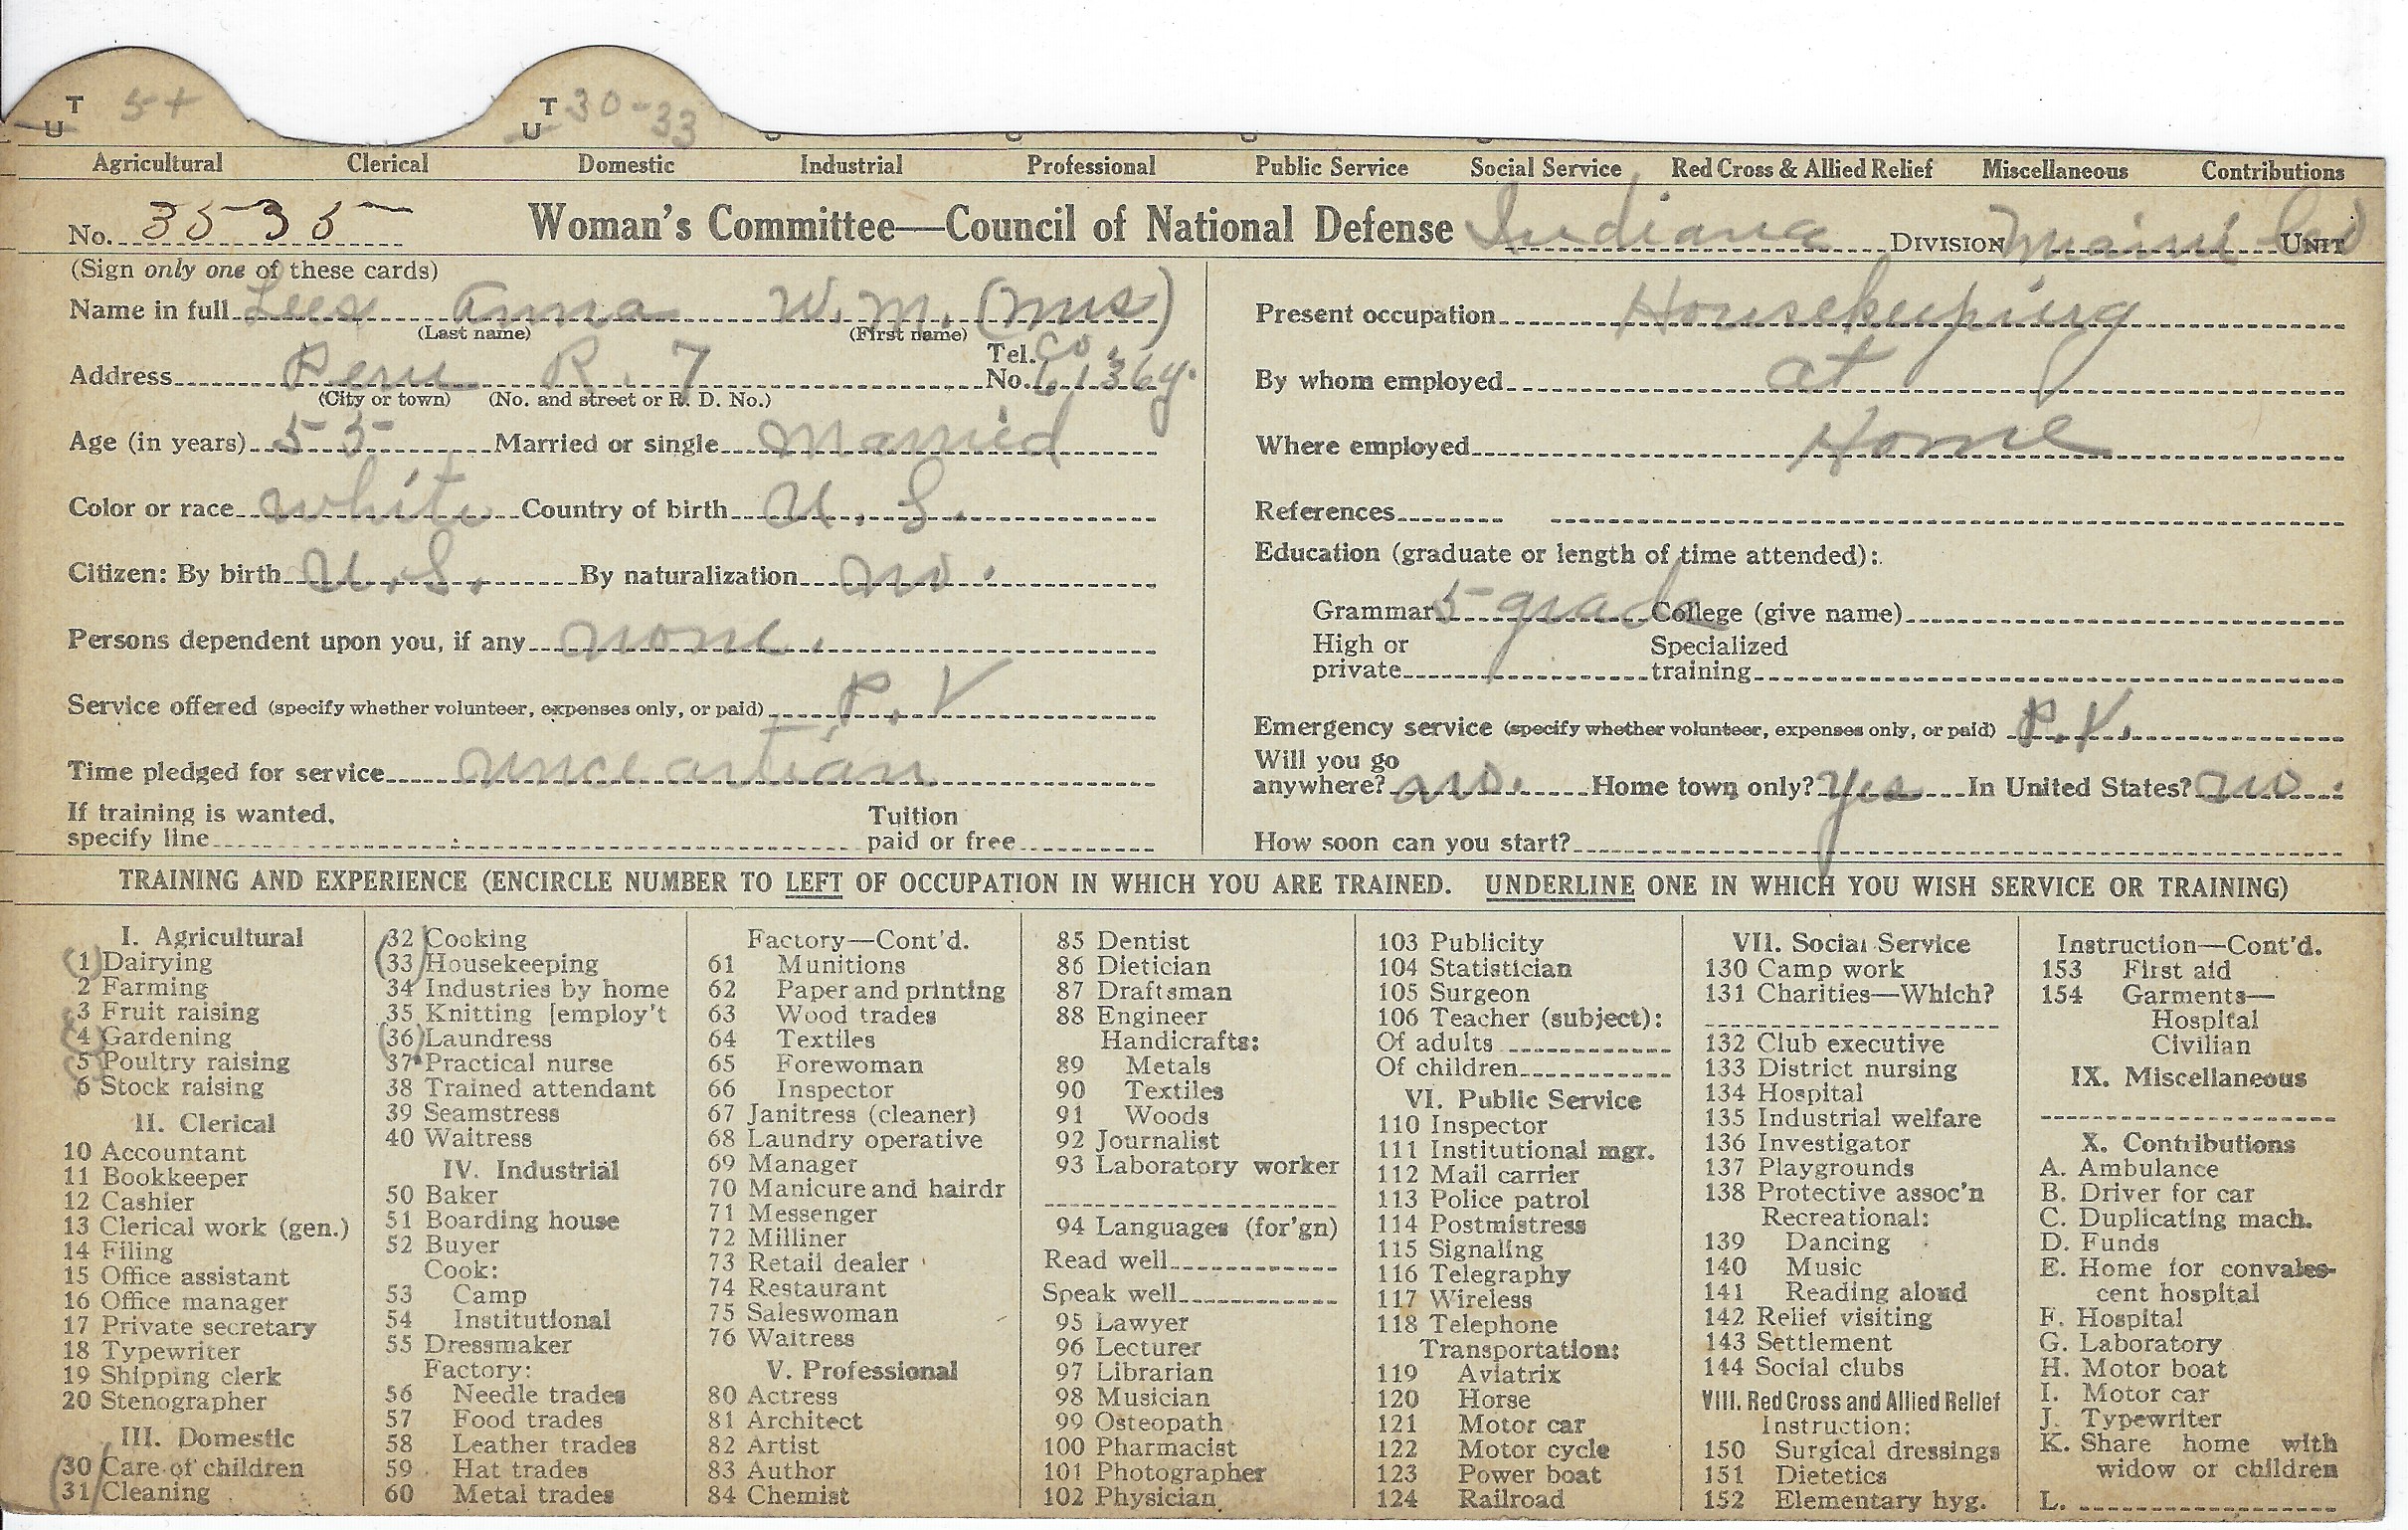 T 5+ T 30-33
U U
Agricultural Clerical Domestic Industrial Professional Public Service Social Service Red Cross & Allied Relief Miscellaneous Contributions
No. 3535 Woman's Committee—Council of National Defense Indiana DIVISION Miami Co UNIT
(Sign only one of these cards)
Name in full Lees Anna W. M. (Mrs)
(Last name) (First name)
Address Peru R. 7 Tel. No. Co. 
(City or town) (No. and street or R. D. No.)
Age (in years) 55 Married or single Married
Color or race white Country of birth U. S.
Citizen: By birth U.S. By naturalization no.
Persons dependent upon you, if any none.
Service offered (specify whether volunteer, expenses only, or paid) P. V
Time pledged for service uncertian
If training is wanted, specify line Tuition paid or free
Present occupation Housekeeping
By whom employed at
Where employed Home
References
Education (graduate or length of time attended):
Grammar 5 grade College (give name)
High or private Specialized training
Emergency service (specify whether volunteer, expenses only, or paid) P.V.
Will you go anywhere? no. Home town only? Yes In United States? no.
How soon can you start?
TRAINING AND EXPERIENCE (ENCIRCLE NUMBER TO LEFT OF OCCUPATION IN WHICH YOU ARE TRAINED. UNDERLINE ONE IN WHICH YOU WISH SERVICE OR TRAINING)
I. Agricultural
(1) Dairying
2 Farming
3 Fruit raising
(4) Gardening
(5) Poultry raising
6 Stock raising
II. Clerical
10 Accountant
11 Bookkeeper
12 Cashier
13 Clerical work (gen.)
14 Filing
15 Office assistant
16 Office manager
17 Private secretary
18 Typewriter
19 Shipping clerk
20 Stenographer
III. Domestic
(30 Care of children
31) Cleaning
32 Cooking
(33) Housekeeping
34 Industries by home
35 Knitting [employ't
(36) Laundress
37 Practical nurse
38 Trained attendant
39 Seamstress
40 Waitress
IV. Industrial
50 Baker
51 Boarding house
52 Buyer
Cook:
53 Camp
54 Institutional
55 Dressmaker
Factory:
56 Needle trades
57 Food trades
58 Leather trades
59 Hat trades
60 Metal trades
Factory—Cont'd.
61 Munitions
62 Paper and printing
63 Wood trades
64 Textiles
65 Forewoman
66 Inspector
67 Janitress (cleaner)
68 Laundry operative
69 Manager
70 Manicure and hairdr
71 Messenger
72 Milliner
73 Retail dealer
74 Restaurant
75 Saleswoman
76 Waitress
V. Professional
80 Actress
81 Architect
82 Artist
83 Author
84 Chemist
85 Dentist
86 Dietician
87 Draftsman
88 Engineer
Handicrafts:
89 Metals
90 Textiles
91 Woods
92 Journalist
93 Laboratory worker
94 Languages (for'gn)
Read well
Speak well
95 Lawyer
96 Lecturer
97 Librarian
98 Musician
99 Osteopath
100 Pharmacist
101 Photographer
102 Physician
103 Publicity
104 Statistician
105 Surgeon
106 Teacher (subject):
Of adults
Of children
VI. Public Service
110 Inspector
111 Institutional mgr.
112 Mail carrier
113 Police patrol
114 Postmistress
115 Signaling
116 Telegraphy
117 Wireless
118 Telephone
Transportation:
119 Aviatrix
120 Horse
121 Motor car
122 Motor cycle
123 Power boat
124 Railroad
VII. Social Service
130 Camp work
131 Charities—Which?
132 Club executive
133 District nursing
134 Hospital
135 Industrial welfare
136 Investigator
137 Playgrounds
138 Protective assoc'n
Recreational:
139 Dancing
140 Music
141 Reading aloud
142 Relief visiting
143 Settlement
144 Social clubs
VIII. Red Cross and Allied Relief
Instruction:
150 Surgical dressings
151 Dietetics
152 Elementary hyg.
Instruction—Cont'd.
153 First aid
154 Garments—
Hospital
Civilian
IX. Miscellaneous
X. Contributions
A. Ambulance
B. Driver for car
C. Duplicating mach.
D. Funds
E. Home for convales-
cent hospital
F. Hospital
G. Laboratory
H. Motor boat
I. Motor car
J. Typewriter
K. Share home with
widow or children
L.